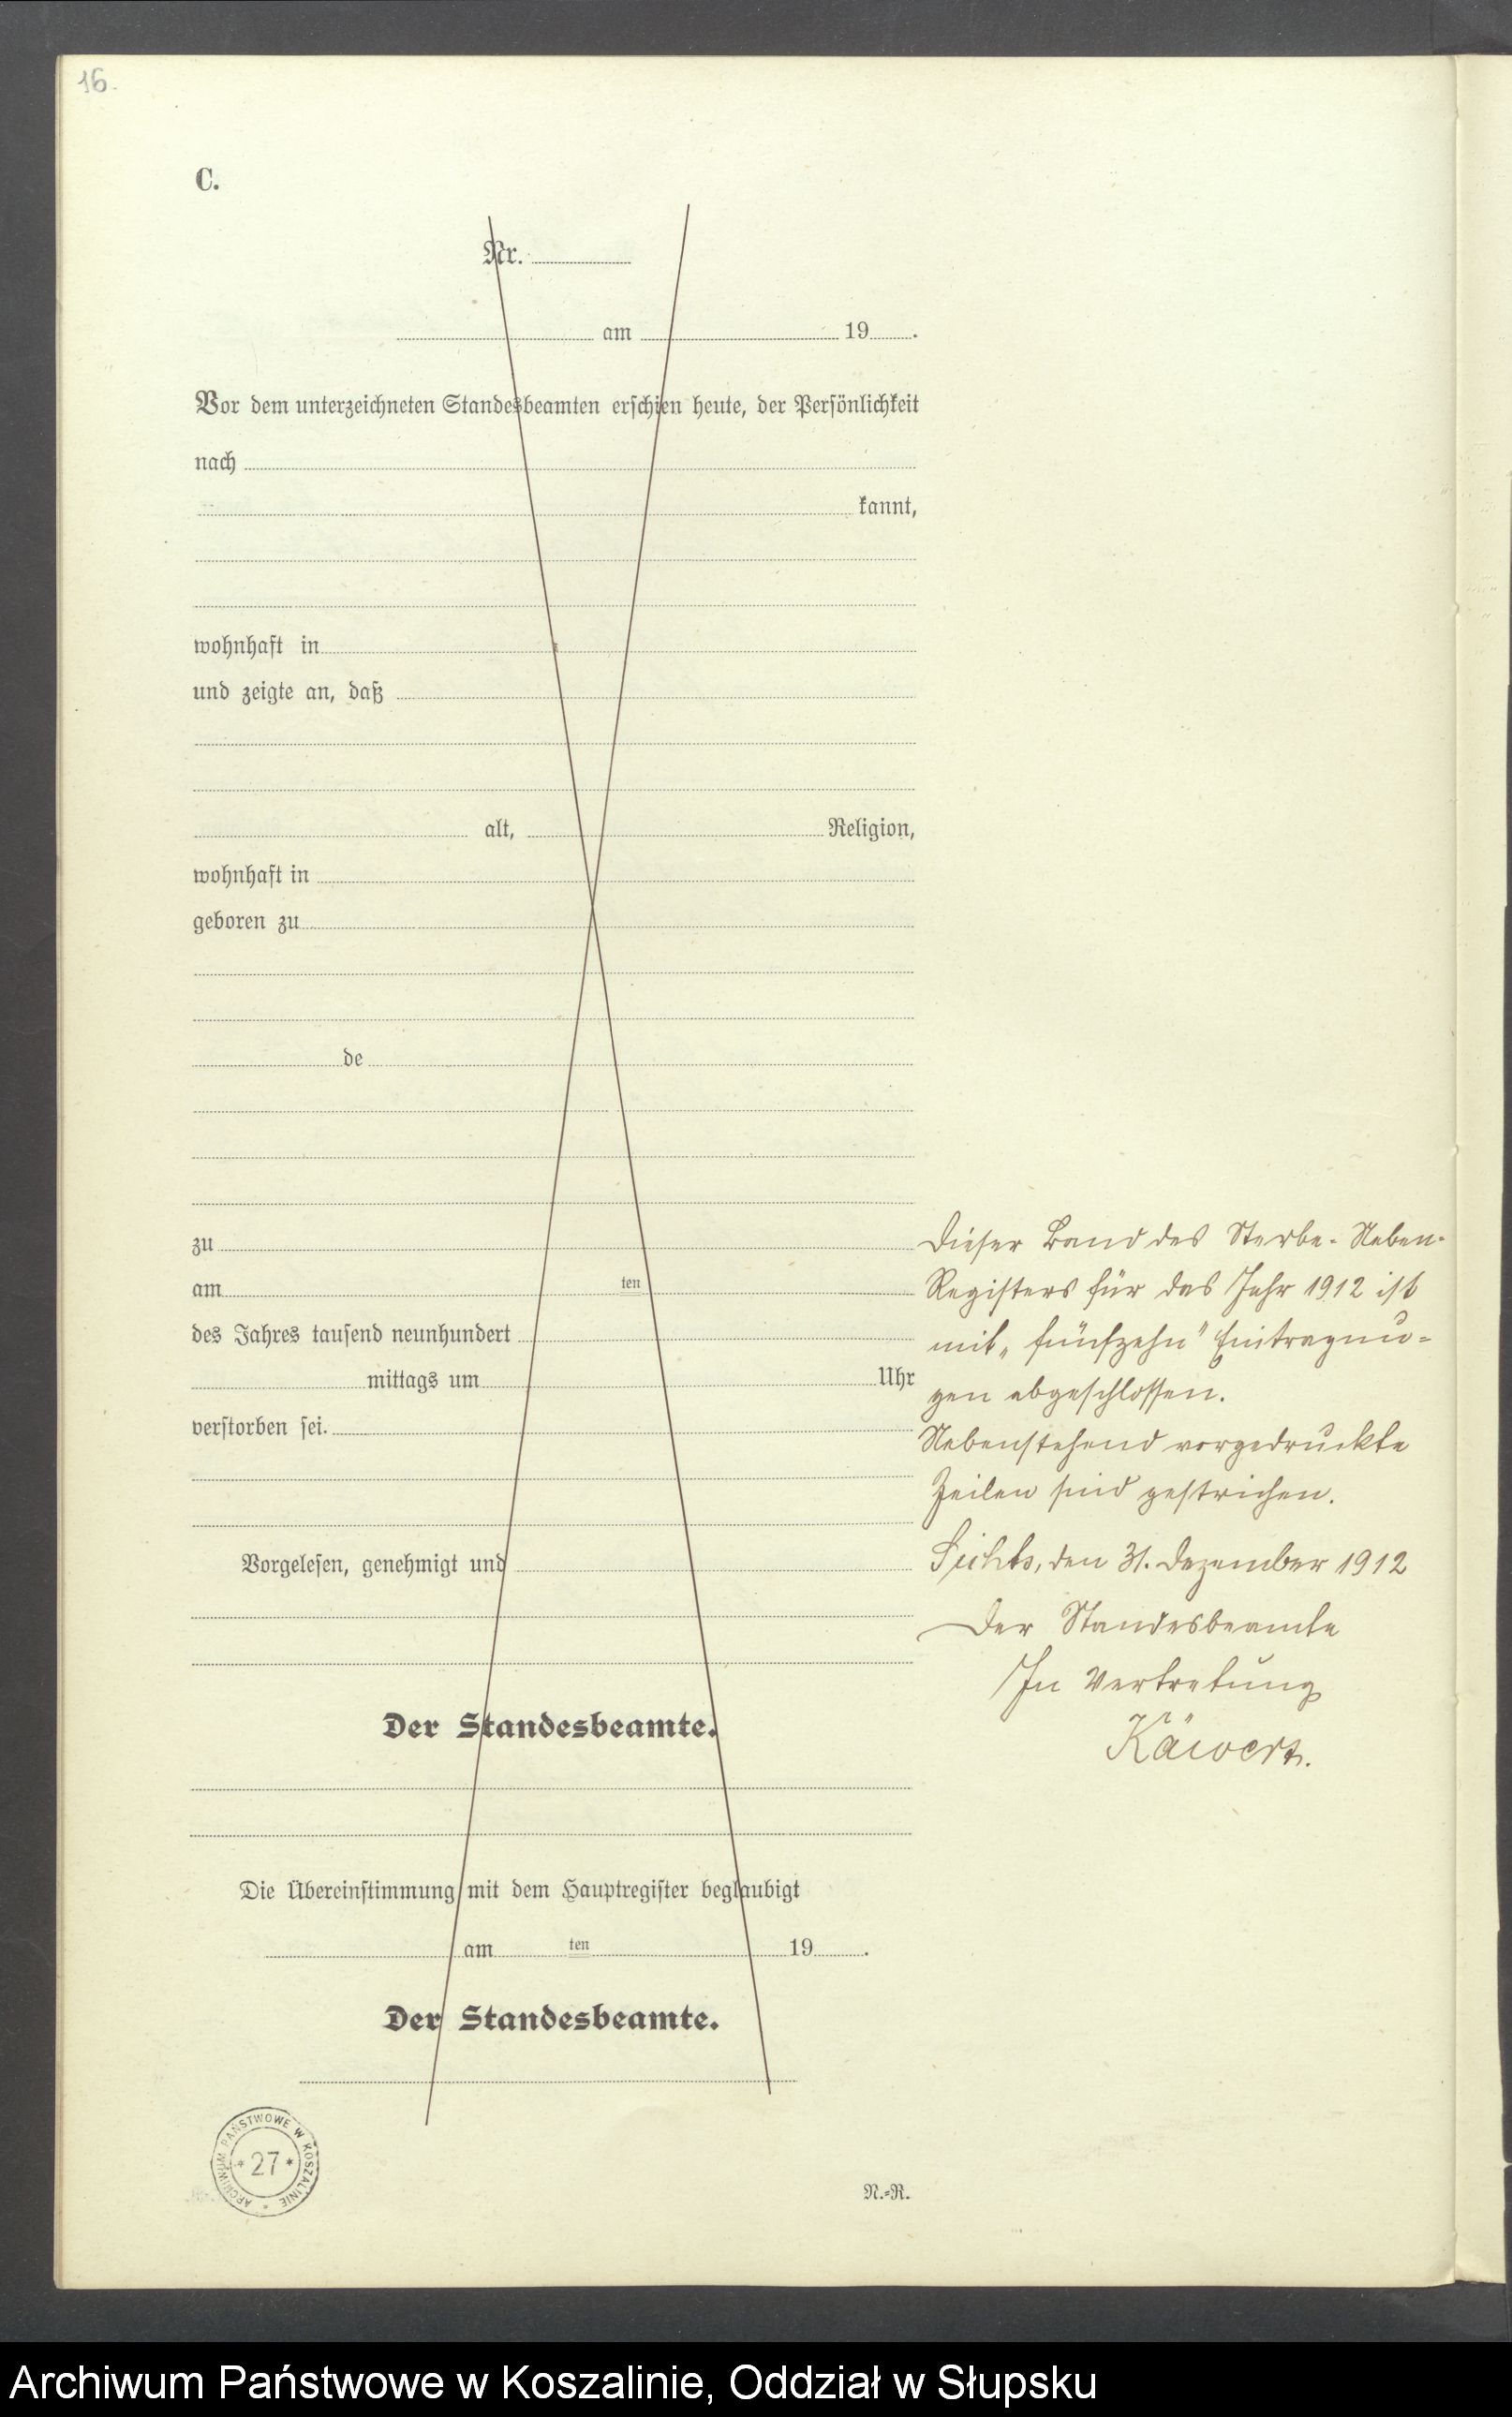 16.
C.
Nr.
am 19 .
Vor dem unterzeichneten Standesbeamten erschien heute, der Persönlichkeit
nach
kannt,
wohnhaft in
und zeigte an, daß
alt, Religion,
wohnhaft in
geboren zu
de
zu
am ten
des Jahres tausend neunhundert
mittags um Uhr
verstorben sei.
Vorgelesen, genehmigt und
Der Standesbeamte.
Die Übereinstimmung mit dem Hauptregister beglaubigt
am ten 19 .
Der Standesbeamte.
N.=R.
Dieser Band des Sterbe-Neben-
Registers für das Jahr 1912 ist
mit „fünfzehn" Eintragun=
gen abgeschlossen.
Nebenstehend vorgedruckte
Zeilen sind gestrichen.
den 31. Dezember 1912
Der Standesbeamte
In Vertretung
ARCHIWUM PAŃSTWOWE W KOSZALINIE
* 27 *
Archiwum Państwowe w Koszalinie, Oddział w Słupsku